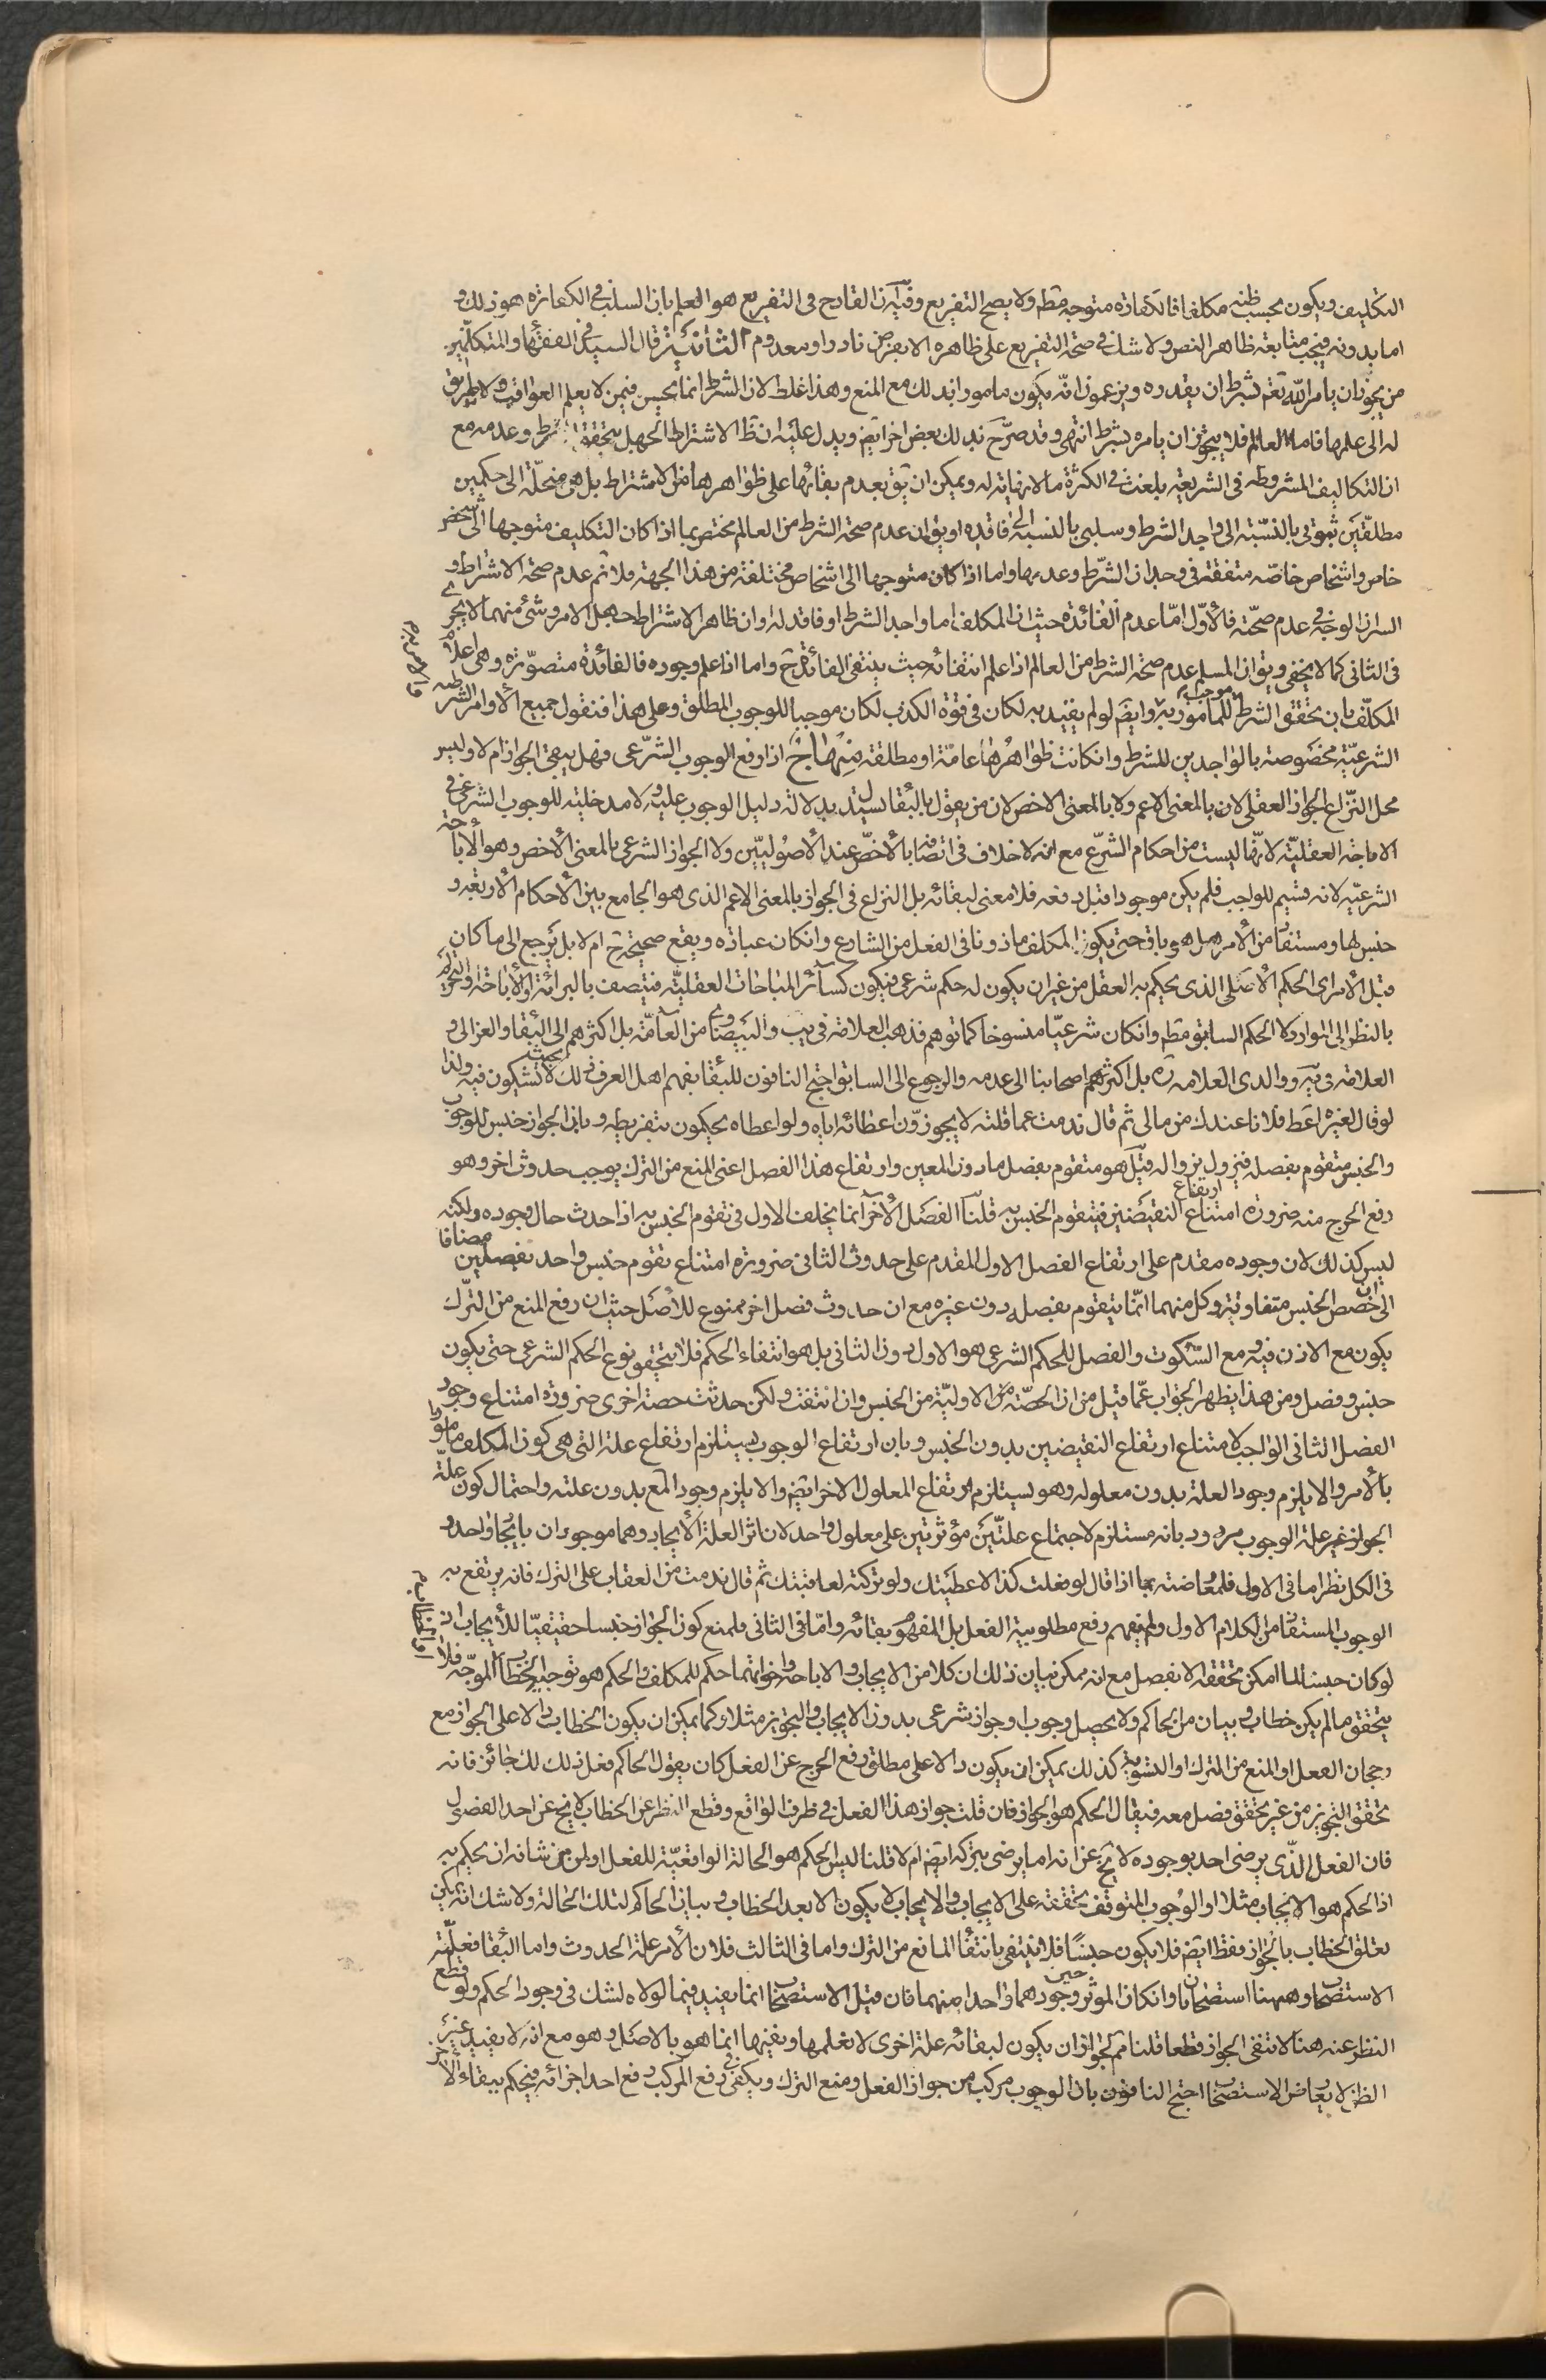 التكليف ويكون بحسب ظنه مكلفا فالكفارة متوجه مطم ولا يصح التفريع وفيه ان القادح فى التفريع هو العلم بان السلب فى الكفارة هو ذلك و
اما بدونه فيجب متابعة ظاهر النص ولا شك فى صحة التفريع على ظاهره الا بفرض نادر او معدوم الثانية قال السيد فى الفقهاء والمتكلمين
من يجوز ان يامر الله تعم بشرط ان يقدره ويزعمون انه يكون مامورا بذلك مع المنع وهذا غلط لان الشرط انما يحسن فيمن لا يعلم العواقب ولا طريق
له الى علمها فاما العالم فلا يجوز ان يامره بشرط انتهى وقد صرح بذلك بعض اخر ايضم ويدل عليه ان ظ الاشتراط الجهل بتحقق الشرط وعدمه مع
ان التكاليف المشروطة فى الشريعة بلغت فى الكثرة ما لا نهاية له ويمكن ان يق بعدم بقائها على ظواهرها من الاشتراط بل هى منحلة الى حكمين
مطلقين ثبوتى بالنسبة الى واجد الشرط وسلبى بالنسبة الى فاقده او يق ان عدم صحة الشرط من العالم مختص بما اذا كان التكليف متوجها الى شخص
خاص واشخاص خاصه متفقة فى وجدان الشرط وعدمها واما اذا كان متوجها الى اشخاص مختلفة من هذا الجهة فلا نم عدم صحة الاشتراط و
السر ان الوجه فى عدم صحته فالاول اما عدم الفائدة حيث ان المكلف اما واجد الشرط او فاقد له او ان ظاهر الاشتراط جهل الامر وشئ منهما لا يجرى
فى الثانى كما لا يخفى ويق ان المسلم عدم صحة الشرط من العالم اذا علم انتفائه حيث ينتفى الفائدة ح واما اذا علم وجوده فالفائدة متصورة وهى اعلام
المكلف بان تحقق الشرط موجب للمامور به وايضم لو لم يقيد به لكان فى قوة الكذب لكان موجبا للوجوب المطلق وعلى هذا فنقول جميع الاوامر الشرطية
الشرعية مخصوصة بالواجدين للشرط وان كانت ظواهرها عامة او مطلقة منهاج اذا رفع الوجوب الشرعى فهل يبقى الجواز ام لا وليس
محل النزاع الجواز العقلى لان بالمعنى الاعم ولا بالمعنى الاخص لان من يقول بالبقا يستدل بدلالة دليل الوجوب عليه ولا مدخلية للوجوب الشرعى فى
الاباحة العقلية لانها ليست من احكام الشرع مع انه لا خلاف فى اتصافه بالاخص عند الاصوليين ولا الجواز الشرعى بالمعنى الاخص وهو الاباحة
الشرعية لانه قسيم للواجب فلم يكن موجودا قبل رفعه فلا معنى لبقائه بل النزاع فى الجواز بالمعنى الاعم الذى هو الجامع بين الاحكام الاربعة و
جنس لها ومستفاد من الامر هل هو باق حتى يكون المكلف ماذونا فى الفعل من الشارع وان كان عبادة ويقع صحيحة ح ام لا بل يرجع الى ما كان
قبل الامر اى الحكم الاصلى الذى يحكم به العقل من غير ان يكون له حكم شرعى فيكون كسائر المباحات العقلية فيتصف بالبرائة او الاباحة والتحريم
بالنظر الى الموارد لا الحكم السابق مطم وان كان شرعيا منسوخا كما توهم فذهب العلامة فى يب والبيضاوى من العامة بل اكثرهم الى البقا والغزالى و
العلامة فى ية ووالدى العلامه ره بل اكثرهم اصحابنا الى عدمه والرجوع الى السابق احتج النافون للبقا بفهم اهل العرف ذلك بحيث لا تشكون فيه ولذا
لو قال لغيره اعط فلانا عندك من مالى ثم قال ندمت عما قلته لا يجوزون اعطائه اياه ولو اعطاه يحكمون بتفريطه وبان الجواز جنس للوجوب
والجنس متقوم بفصله فيزول بزواله قيل هو متقوم بفصل ما دون المعين وارتفاع هذا الفصل اعنى المنع من الترك يوجب حدوث اخر وهو
رفع الحرج منه ضرورة امتناع ارتفاع النقيضين فيتقوم الجنس به قلنا الفصل الاخر انما يخلف الاول فى تقوم الجنس به اذا حدث حال وجوده ولكنه
ليس كذلك لان وجوده مقدم على ارتفاع الفصل الاول المقدم على حدوث الثانى ضرورة امتناع تقوم جنس واحد بفصلين مضافا
الى ان حصص الجنس متفاوتة وكل منهما انما يتقوم بفصله دون غيره مع ان حدوث فصل اخر ممنوع للاصل حيث ان رفع المنع من الترك
يكون مع الاذن فيه ومع السكوت والفصل للحكم الشرعى هو الاول دون الثانى بل هو انتفاء الحكم فلا يتحقق نوع الحكم الشرعى حتى يكون
جنس وفصل ومن هذا يظهر الجواب عما قيل من ان الحصة الاولية من الجنس وان انتفت ولكن حدثت حصة اخرى ضرورة امتناع وجود
الفصل الثانى الواجب لامتناع ارتفاع النقيضين بدون الجنس وبان ارتفاع الوجوب يستلزم ارتفاع علته التى هى كون المكلف مامورا
بالامر والا يلزم وجود العلة بدون معلوله وهو يستلزم ارتفاع المعلول الاخر ايضم والا يلزم وجود المع بدون علته واحتمال كون علة
الجواز غير علة الوجوب مردود بانه مستلزم لاجتماع علتين مؤثرتين على معلول واحد لان اثر العلة الايجاد وهما موجودان بايجاد واحد و
فى الكل نظر اما فى الاول فلمعارضته بما اذا قال لو فعلت كذا لاعطيتك ولو تركته لعاقبتك ثم قال ندمت من العقاب على الترك فانه يرتفع به
الوجوب المستفاد من الكلام الاول ولم يفهم رفع مطلوبية الفعل بل المفهوم بقائه واما فى الثانى فلمنع كون الجواز جنسا حقيقيا للايجاب اذ
لو كان جنسا لما امكن تحققه الا بفصل مع انه ممكن بيان ذلك ان كلا من الايجاب والاباحة واخواتهما حكم للمكلف والحكم هو توجيه الخطاب الموجه فلا
يتحقق ما لم يكن خطاب وبيان من الحاكم ولا يحصل وجوب وجواز شرعى بدون الايجاب والتجويز مثلا وكما يمكن ان يكون الخطاب دالا على الجواز مع
رجحان الفعل او المنع من الترك او التسوية كذلك يمكن ان يكون دالا على مطلق رفع الحرج عن الفعل كان يقول الحاكم فعل ذلك لك جائز فانه
تحقق التجويز من غير تحقق فصل معه فيقال الحكم هو الجواز فان قلت جواز هذا الفعل فى ظرف الواقع وقطع النظر عن الخطاب لا يخ عن احد الفصول
فان الفعل الذى يرضى احد بوجوده لا يخ عن انه اما يرضى بتركه ايضم ام لا قلنا ليس الحكم هو الحالة الواقعية للفعل او لمن من شانه ان يحكم به
اذ الحكم هو الايجاب مثلا او الوجوب المتوقف تحققه على الايجاب والايجاب لا يكون الا بعد الخطاب وبيان الحاكم لتلك الحالة ولا شك انه يمكن
تعلق الخطاب بالجواز فقط ايضم فلا يكون جنسا فلا ينتفى بانتفاء المانع من الترك واما فى الثالث فلان الامر علة الحدوث واما البقا فعلته
الاستصحاب وههنا استصحابان وان كان الموثر حين وجودهما واحدا منهما فان قيل الاستصحاب انما يفيد فيما لولاه لشك فى وجود الحكم ولو قطع
النظر عنه هنا لانتفى الجواز قطعا قلنا نم لجواز ان يكون لبقائه علة اخرى لا نعلمها ونفيها انما هو بالاصل وهو مع انه لا يفيد غير
الظن لا يعارض الاستصحاب احتج النافون بان الوجوب مركب من جواز الفعل ومنع الترك ويكفى فى رفع المركب رفع احد اجزائه فيحكم ببقاء الاخر